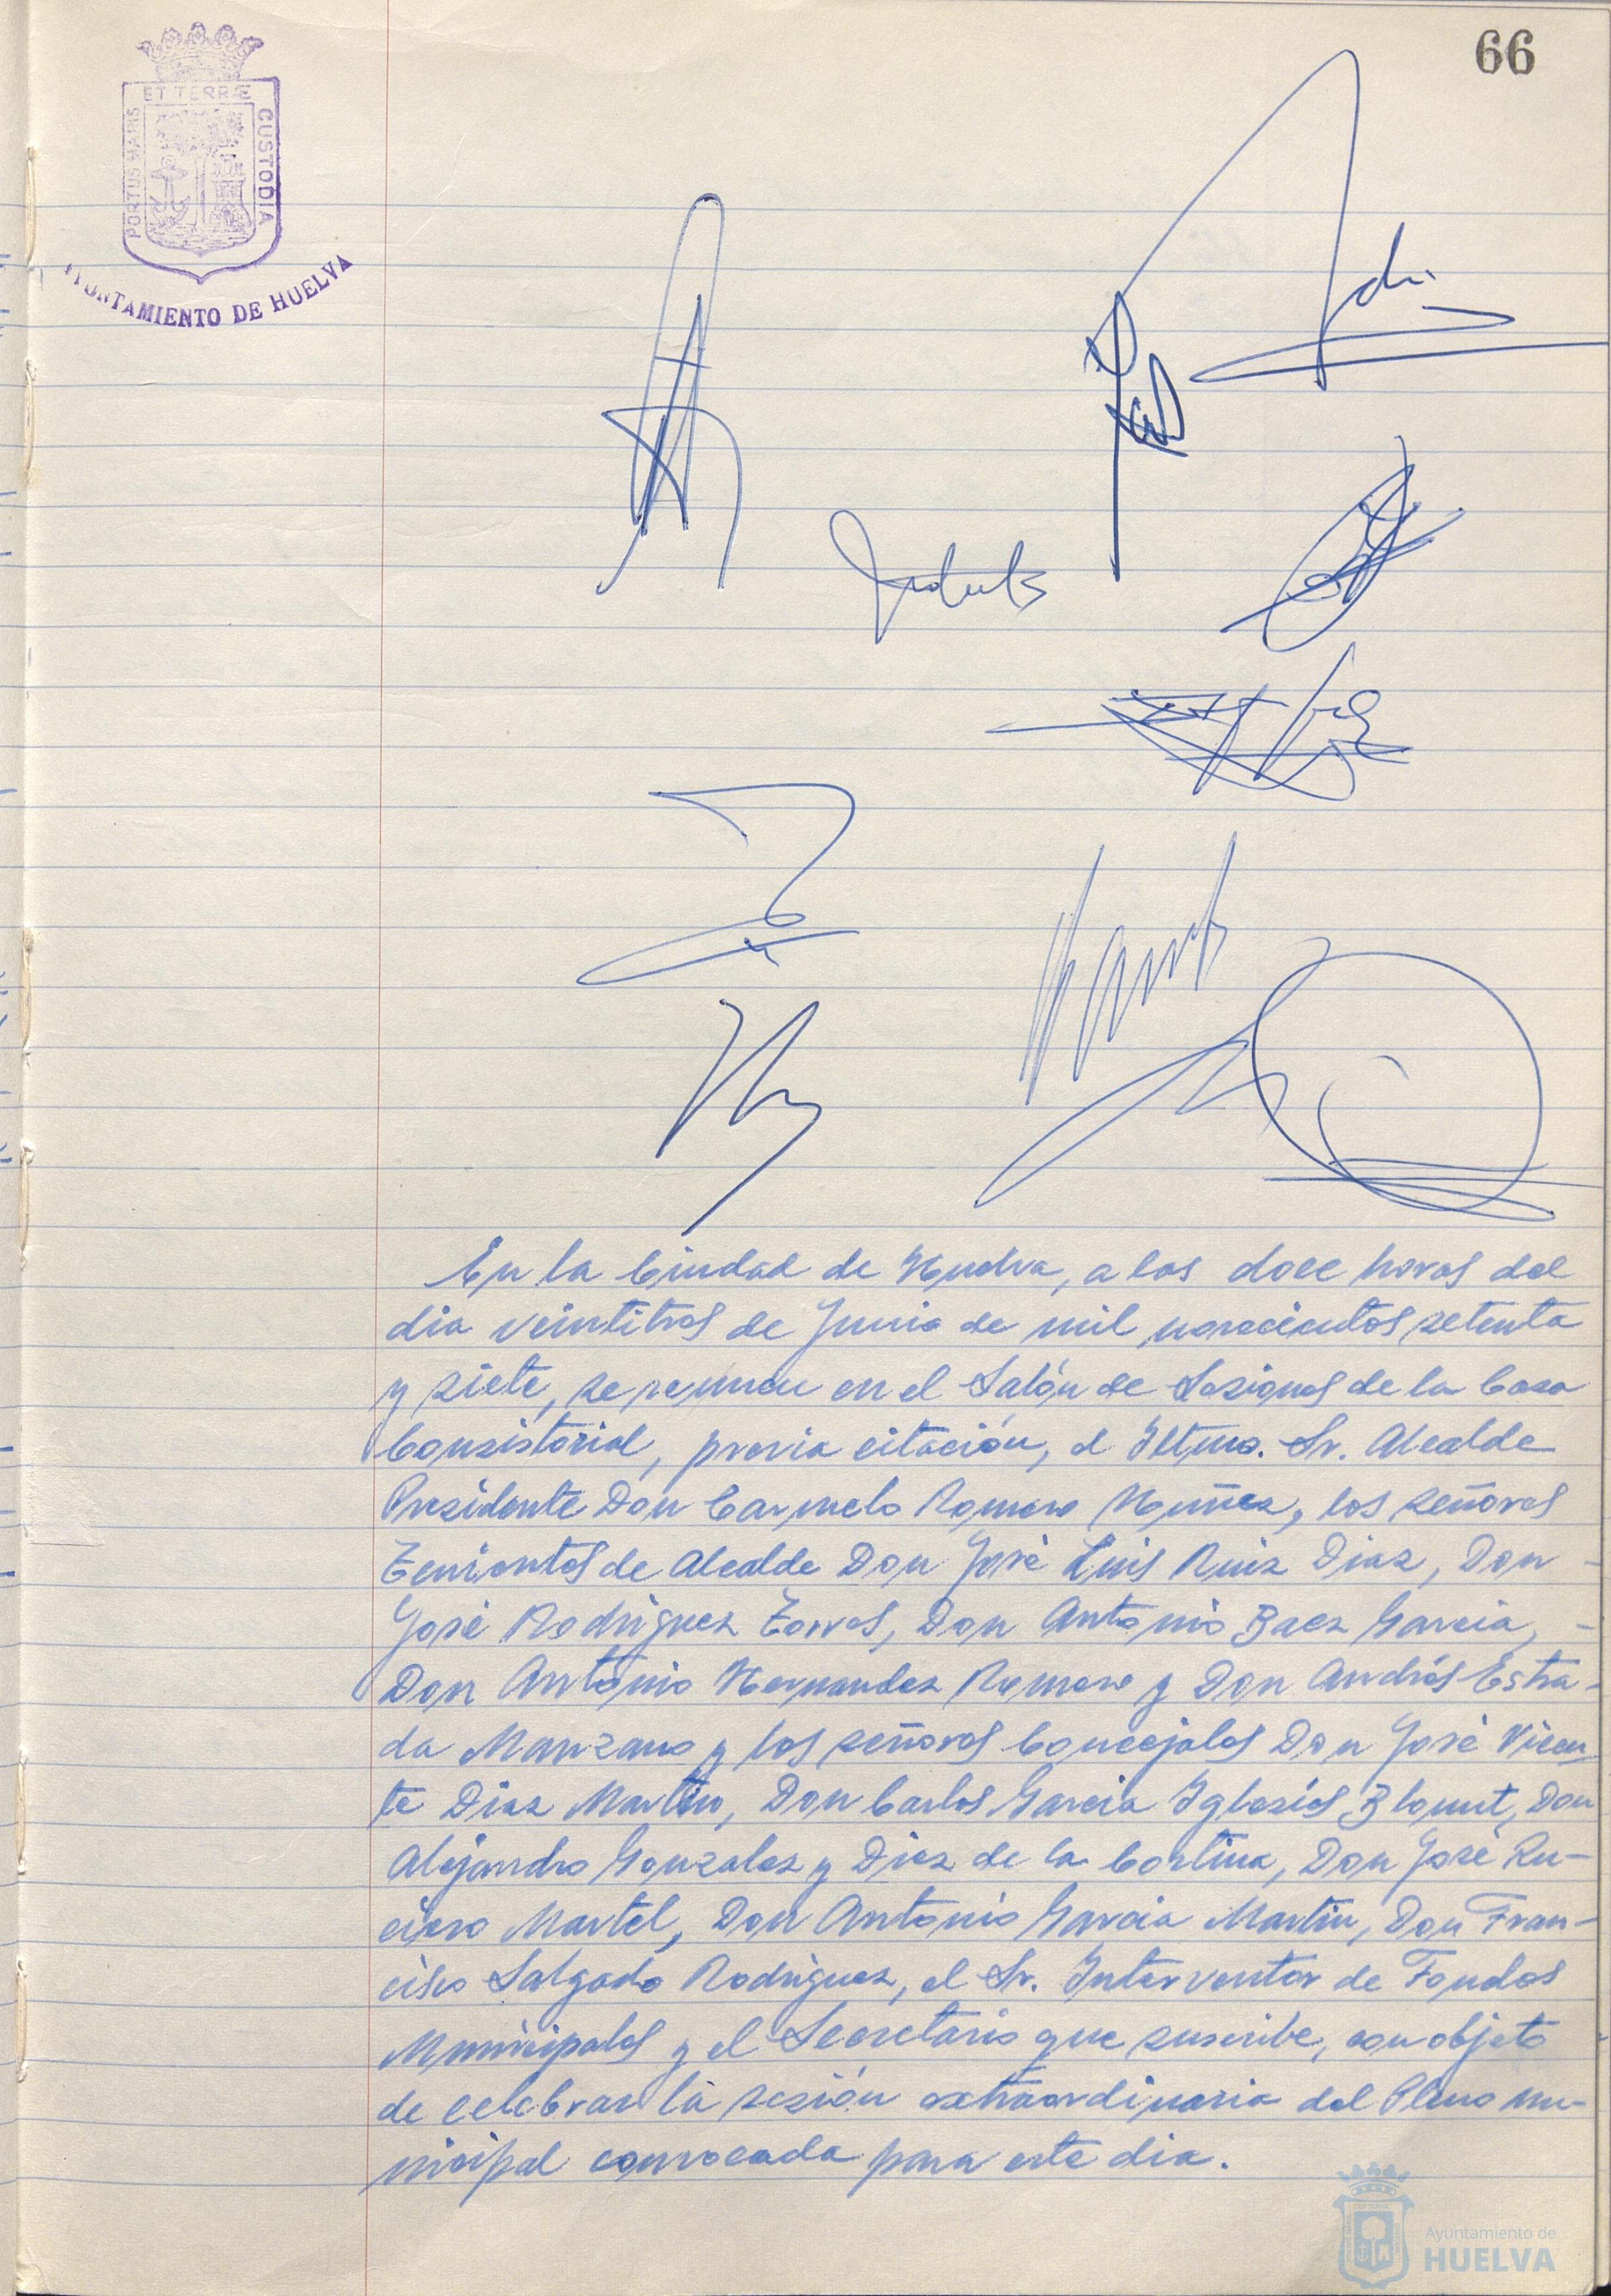 66
ET TERRÆ
PORTUS MARIS
CUSTODIA
AYUNTAMIENTO DE HUELVA
En la Ciudad de Huelva, a las doce horas del
dia veintitres de Junio de mil novecientos setenta
y siete, se reunen en el Salón de Sesiones de la Casa
Consistorial, previa citación, el Iltmo. Sr. Alcalde
Presidente Don Carmelo Romero Nuñez, los señores
Tenientes de Alcalde Don José Luis Ruiz Diaz, Don -
José Rodriguez Torres, Don Antonio Baez Garcia, -
Don Antonio Hernandez Romero y Don Andrés Estra-
da Manzano y los señores Concejales Don José Vicen-
te Diaz Martin, Don Carlos Garcia Iglesias Blount, Don
Alejandro Gonzalez y Diez de la Cortina, Don José Ru-
ciero Martel, Don Antonio Garcia Martin, Don Fran-
cisco Salgado Rodriguez, el Sr. Interventor de Fondos
Municipales y el Secretario que suscribe, con objeto
de celebrar la sesión extraordinaria del Pleno Mu-
nicipal convocada para este dia.
Ayuntamiento de
HUELVA